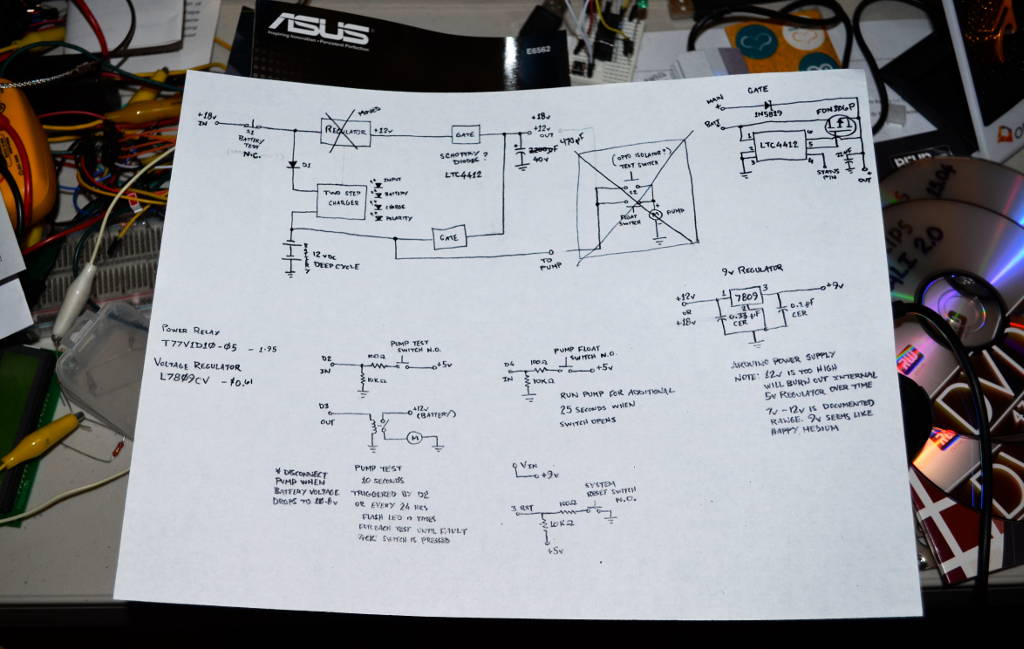 ASUS
Inspiring Innovation • Persistent Perfection
E6562
+18v
IN
S1
BATTERY
TEST
N.C.
REGULATOR
+12v
GATE
SCHOTTKY
DIODE?
LTC4412
+18v
+12v
OUT
40v
470µF
D1
TWO STEP
CHARGER
INPUT
BATTERY
CHARGE
POLARITY
GATE
BATTERY
12 VDC
DEEP CYCLE
TO
PUMP
(OPTO ISOLATOR?)
TEST SWITCH
S2
FLOAT
SWITCH
M
PUMP
GATE
MAIN
1N5819
FDN306P
BATT
LTC4412
1
2
3
6
5
4
STATUS
PIN
OUT
9v REGULATOR
+12v
OR
+18v
1
7809
3
2
+9v
0.33µF
CER
0.1µF
CER
ARDUINO POWER SUPPLY
NOTE: 12v IS TOO HIGH
WILL BURN OUT INTERNAL
5v REGULATOR OVER TIME
7v-12v IS DOCUMENTED
RANGE. 9v SEEMS LIKE
HAPPY MEDIUM
POWER RELAY
T77V1D10-05 - 1.95
VOLTAGE REGULATOR
L7809CV - $0.61
D2
IN
100Ω
10KΩ
PUMP TEST
SWITCH N.O.
+5v
D4
IN
100Ω
10KΩ
PUMP FLOAT
SWITCH N.O.
+5v
RUN PUMP FOR ADDITIONAL
25 SECONDS WHEN
SWITCH OPENS
D3
OUT
+12v
(BATTERY)
M
* DISCONNECT
PUMP WHEN
BATTERY VOLTAGE
DROPS TO
PUMP TEST
10 SECONDS
TRIGGERED BY D2
OR EVERY 24 HRS
FLASH LED TIMES
FOR EACH TEST UNTIL FAULT
SWITCH IS PRESSED
VIN
+9v
RST
100Ω
SYSTEM
RESET SWITCH
N.O.
10KΩ
+5v